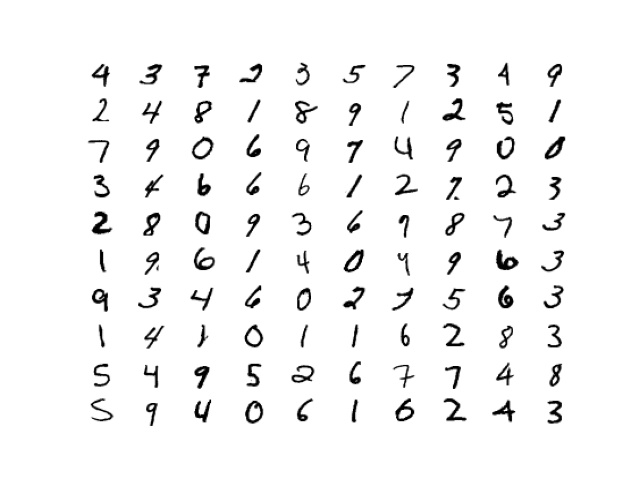 4 3 7 2 3 5 7 3 4 9
2 4 8 1 8 9 1 2 5 1
7 9 0 6 9 7 4 9 0 0
3 4 6 6 6 1 2 7 2 3
2 8 0 9 3 6 9 8 7 3
1 9 6 1 4 0 4 9 6 3
9 3 4 6 0 2 7 5 6 3
1 4 1 0 1 1 6 2 8 3
5 4 9 5 2 6 7 7 4 8
5 9 4 0 6 1 6 2 4 3